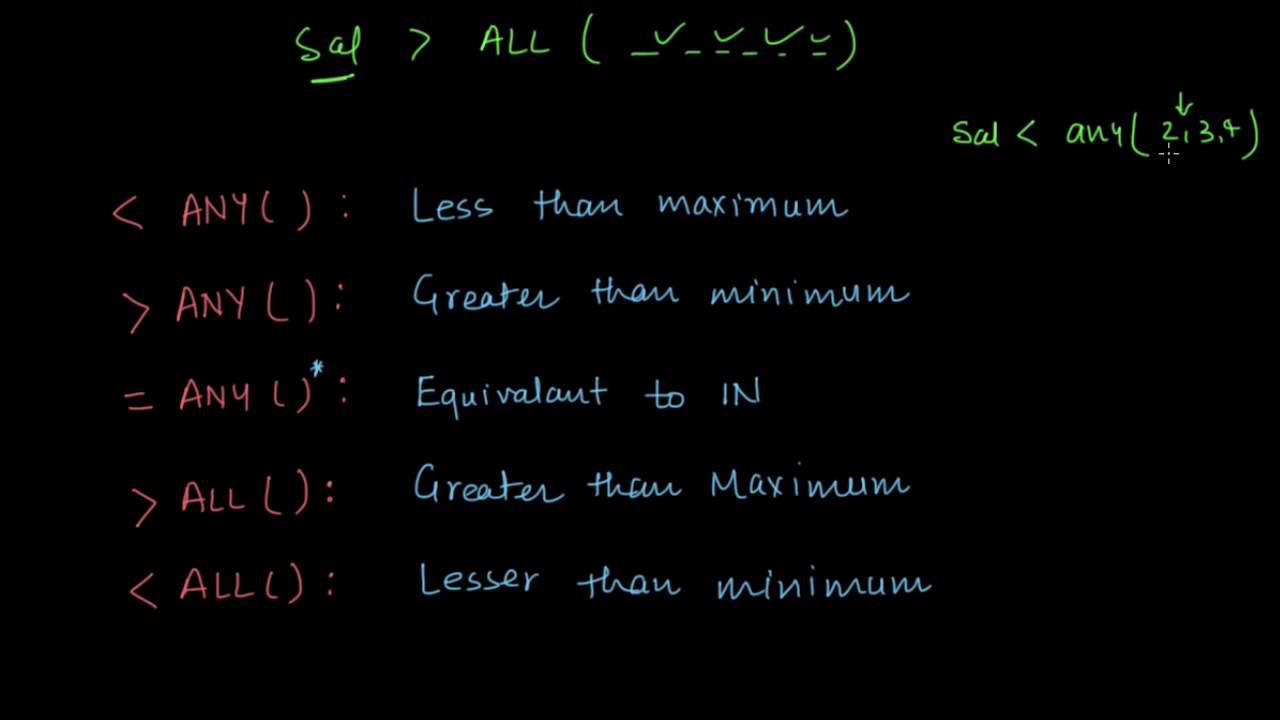 Sal > ALL ( _ _ _ _ _ _ _ )
Sal < any( 2, 3, 4 )
< ANY( ) : Less than maximum
> ANY ( ) : Greater than minimum
= ANY ( )* : Equivalant to IN
> ALL ( ) : Greater than Maximum
< ALL( ) : Lesser than minimum